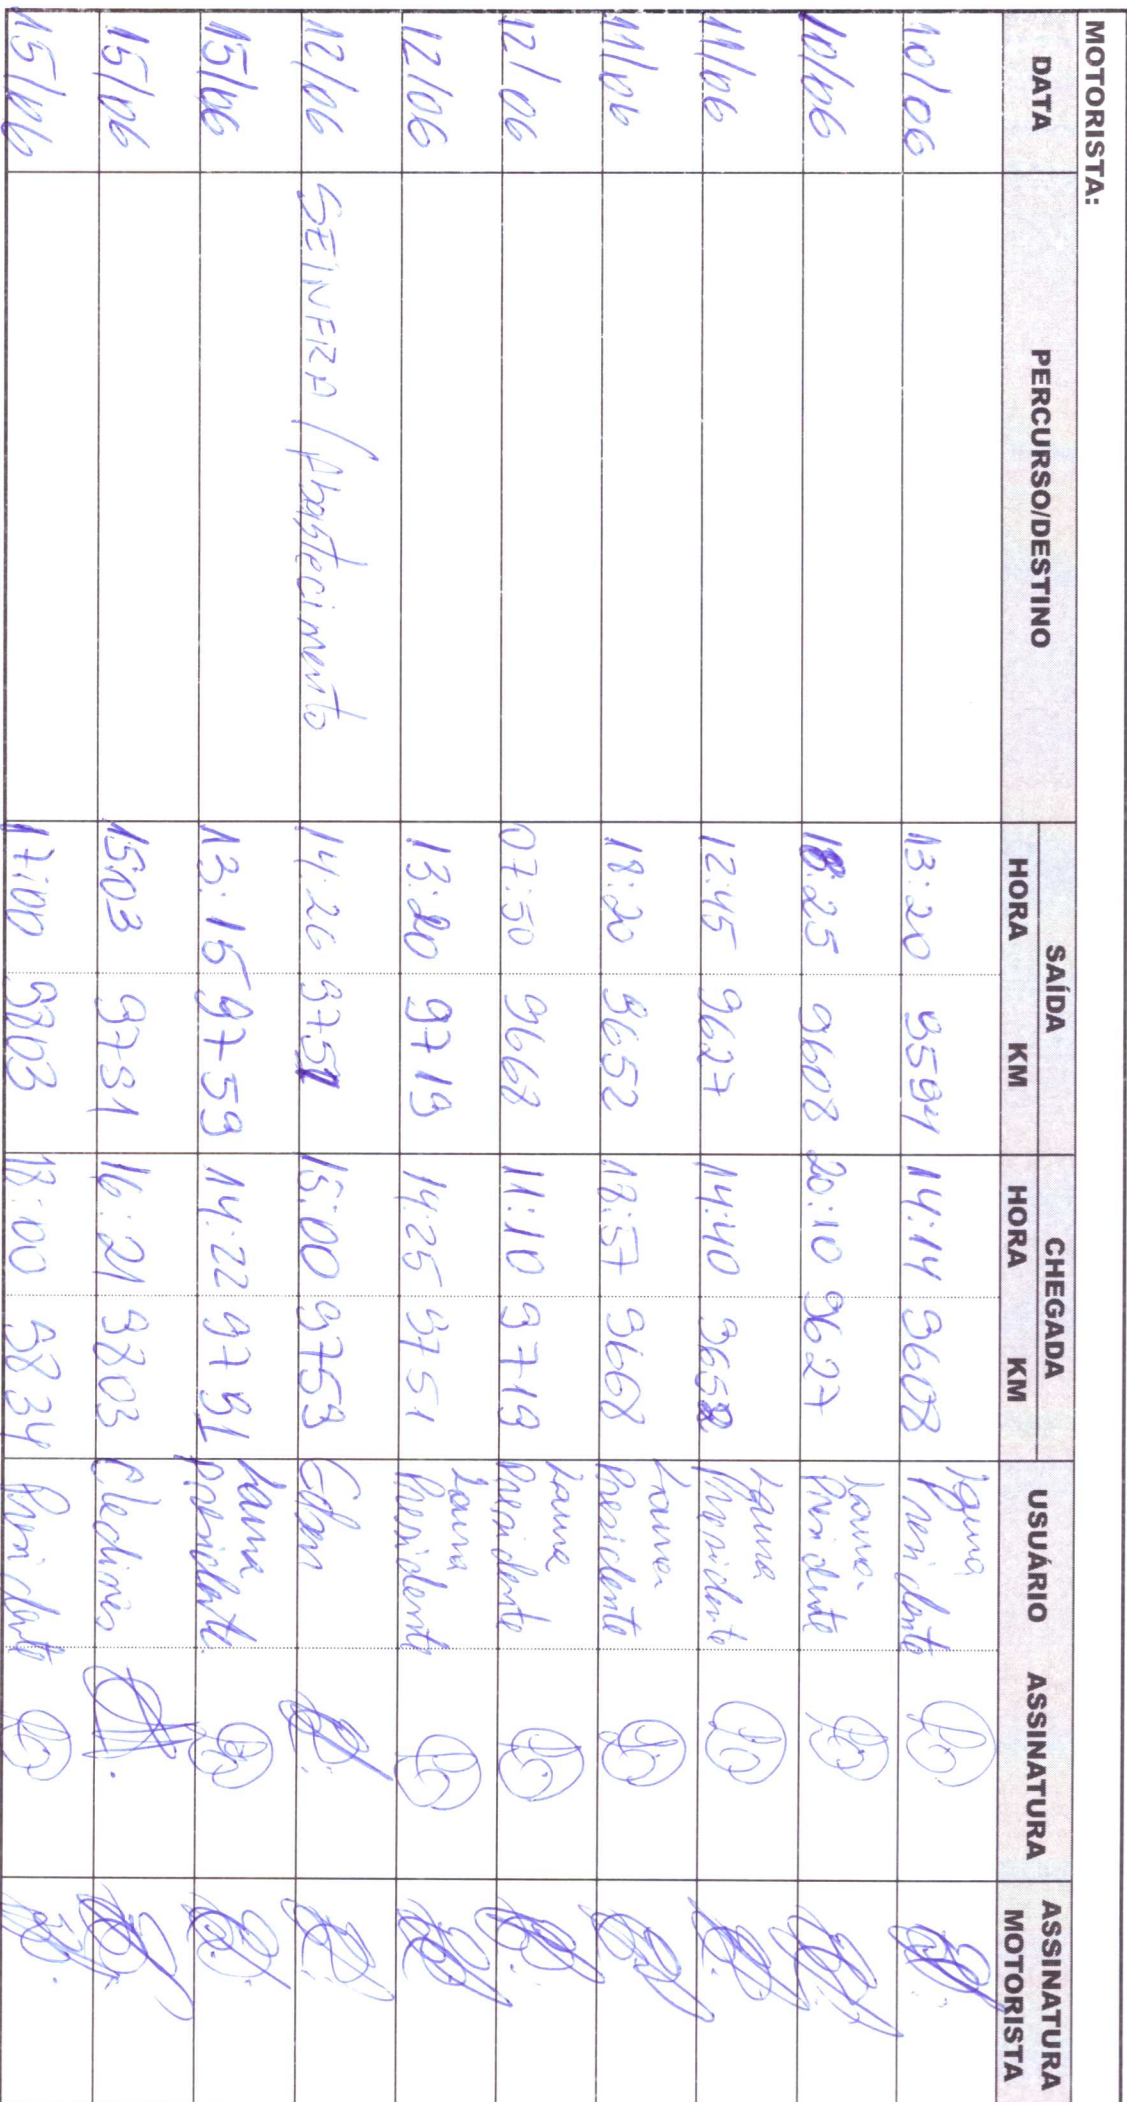 MOTORISTA:
DATA PERCURSO/DESTINO SAÍDA CHEGADA USUÁRIO ASSINATURA ASSINATURA MOTORISTA
HORA KM HORA KM
10/06 13:20 9594 14:14 9608 Laura Presidente
10/06 18:25 9608 20:10 9627 Laura Presidente
11/06 12:45 9627 14:40 9652 Laura Presidente
11/06 18:20 9652 18:57 9668 Laura Presidente
12/06 07:50 9668 11:10 9719 Laura Presidente
12/06 13:20 9719 14:25 9751 Laura Presidente
12/06 SEINFRA / Abastecimento 14:26 9751 15:00 9759 Edson
15/06 13:15 9759 14:22 9791 Laura Presidente
15/06 15:03 9791 16:21 9803
15/06 17:00 9803 18:00 9834 Presidente